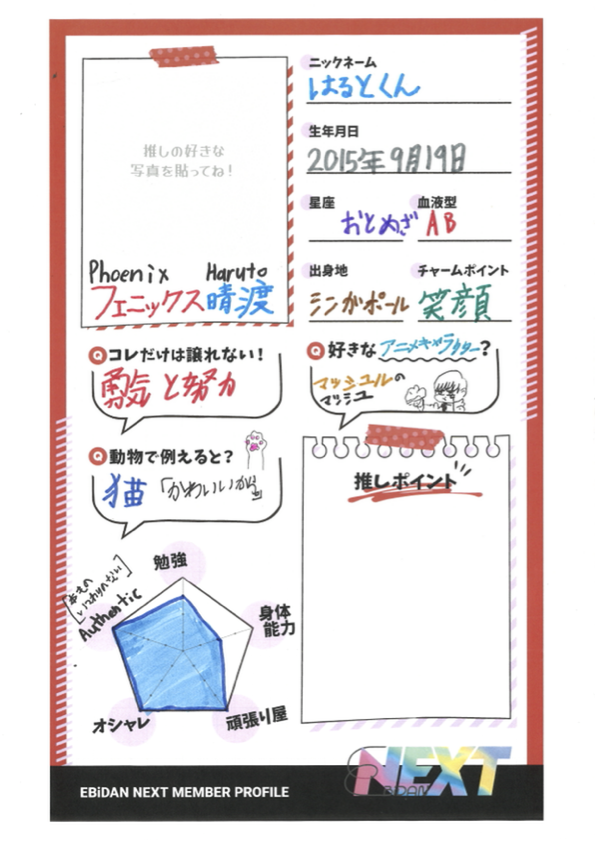 推しの好きな
写真を貼ってね!
Phoenix Haruto
フェニックス晴渡
ニックネーム
はるとくん
生年月日
2015年9月19日
星座 血液型
おとめざ AB
出身地 チャームポイント
シンガポール 笑顔
Qコレだけは譲れない!
勇気と努力
Q好きなアニメキャラクター?
マッシュルの
マッシュ
Q動物で例えると?
猫「かわいいから」
推しポイント
勉強
身体
能力
頑張り屋
オシャレ
Authentic
EBiDAN NEXT MEMBER PROFILE
NEXT
EBiDAN